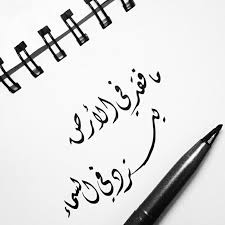 ما فقد في الأرض
يسترد في السماء